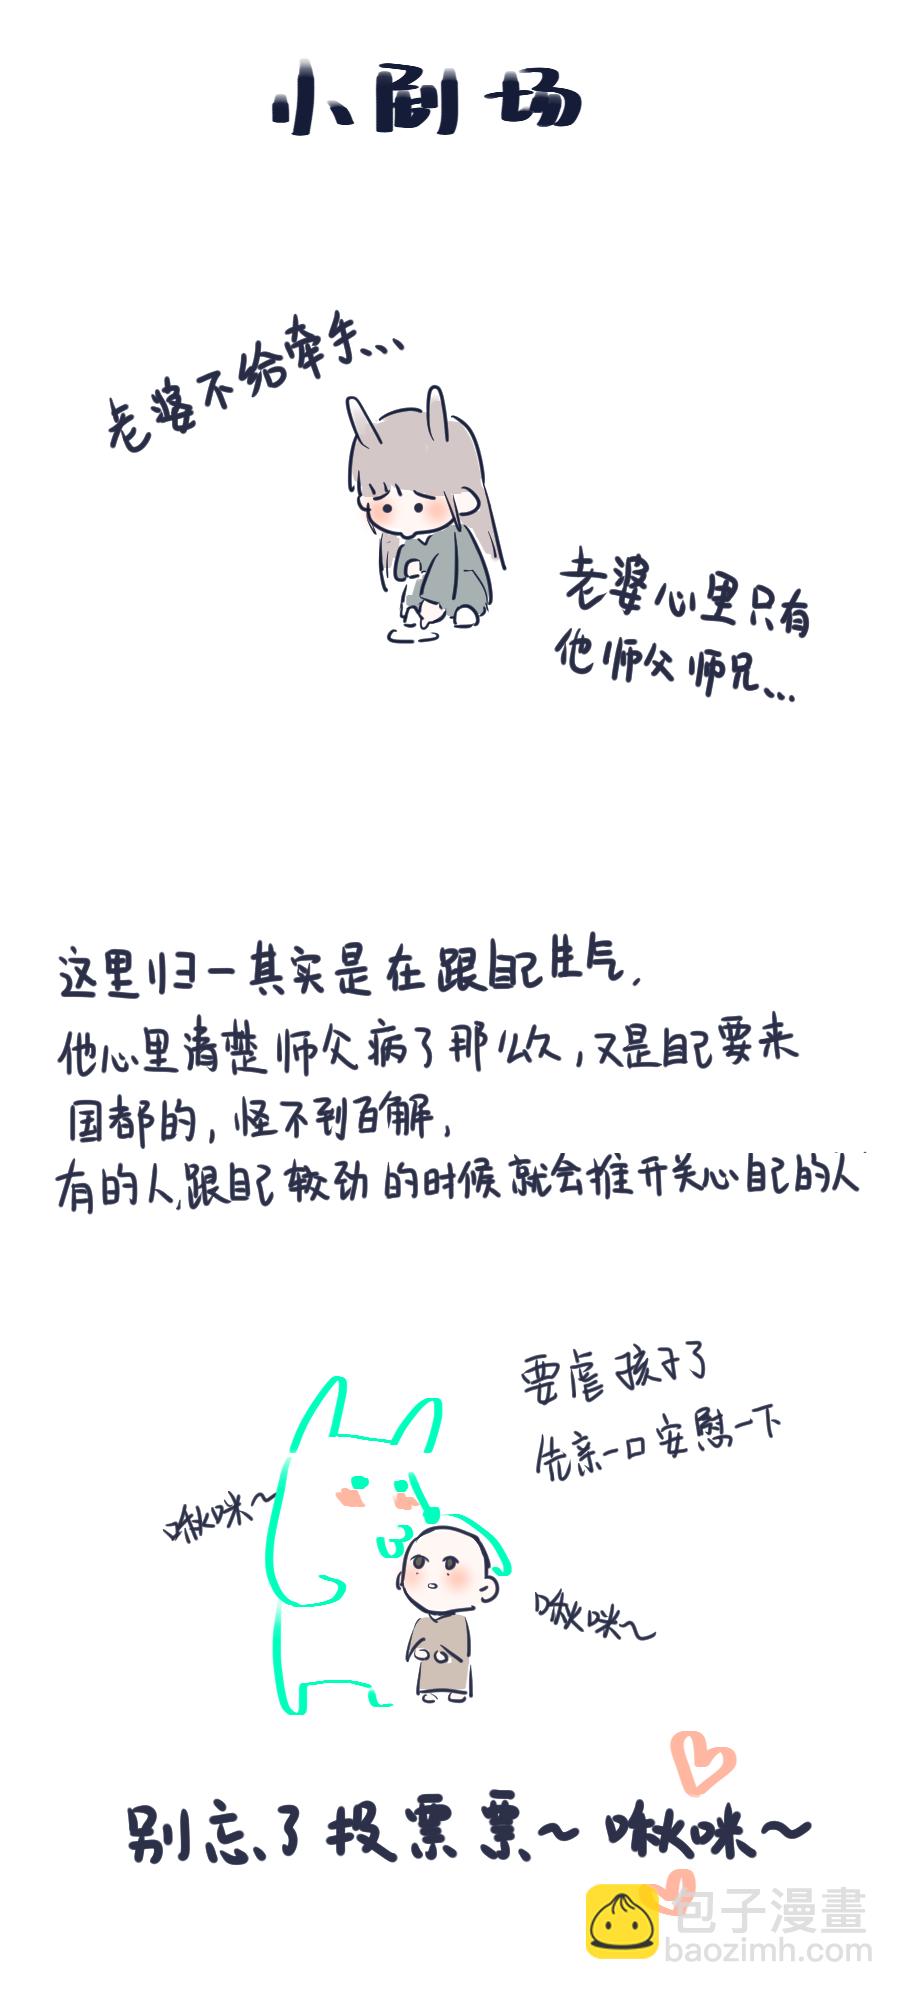 小剧场
老婆不给牵手...
老婆心里只有
他师父师兄...
这里归一其实是在跟自己生气.
他心里清楚师父病了那么久,又是自己要来
国都的,怪不到百解,
有的人,跟自己较劲的时候就会推开关心自己的人
要虐孩子了
先亲一口安慰一下
啾咪~
啾咪~
别忘了投票票~啾咪~
包子漫畫
baozimh.com